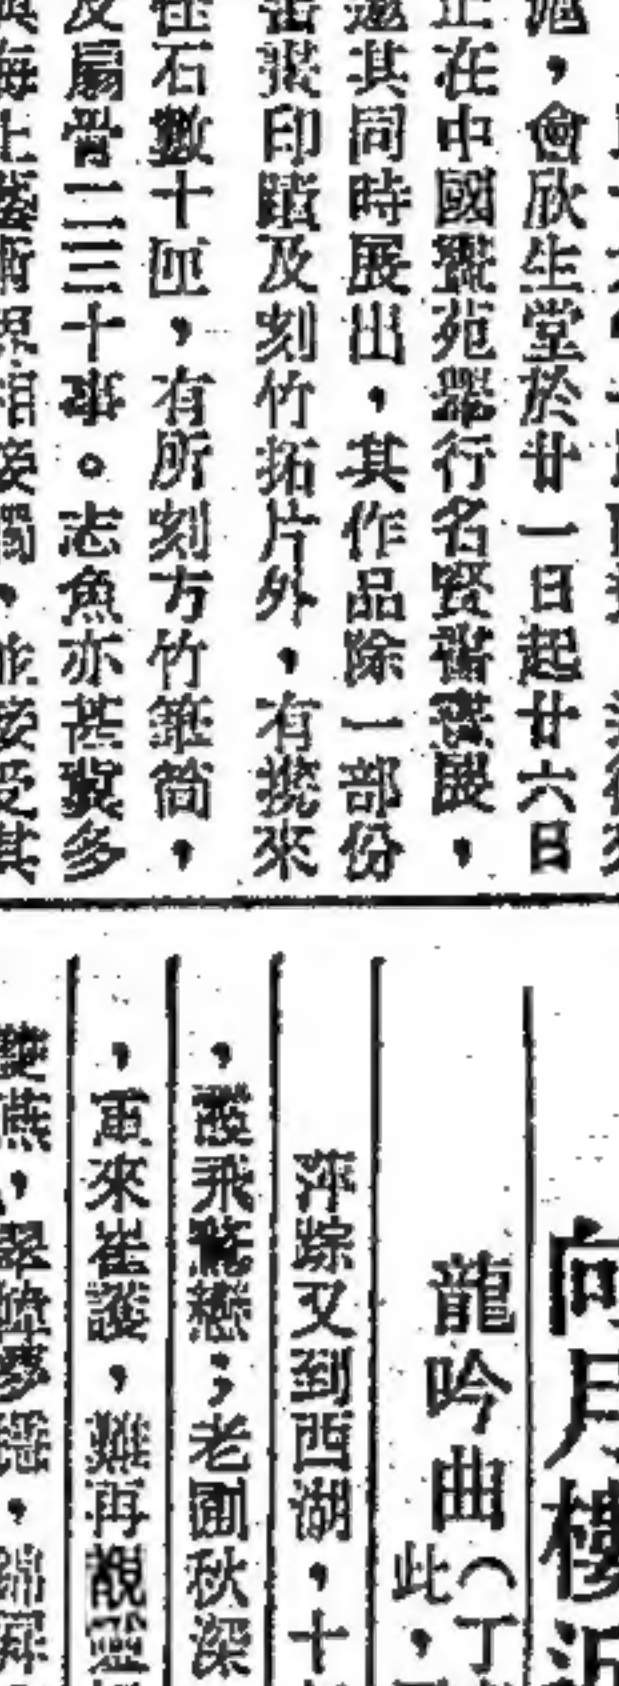 ，會欣生堂於廿一日起廿六日
正在中國畫苑舉行名賢書畫展，
邀其同時展出，其作品除一部份
書畫印蹟及刻竹拓片外，有攜來
怪石數十匣，有所刻方竹筆筒，
及扇骨二三十事。志魚亦甚冀多
與海上藝術界相接觸，能接受其
向月樓
龍吟曲（丁
此，
萍踪又到西湖，十
，飛鴛戀；老圃秋深
，重來崔護，難再覩靈
雙燕，翠 夢 ，錦屏